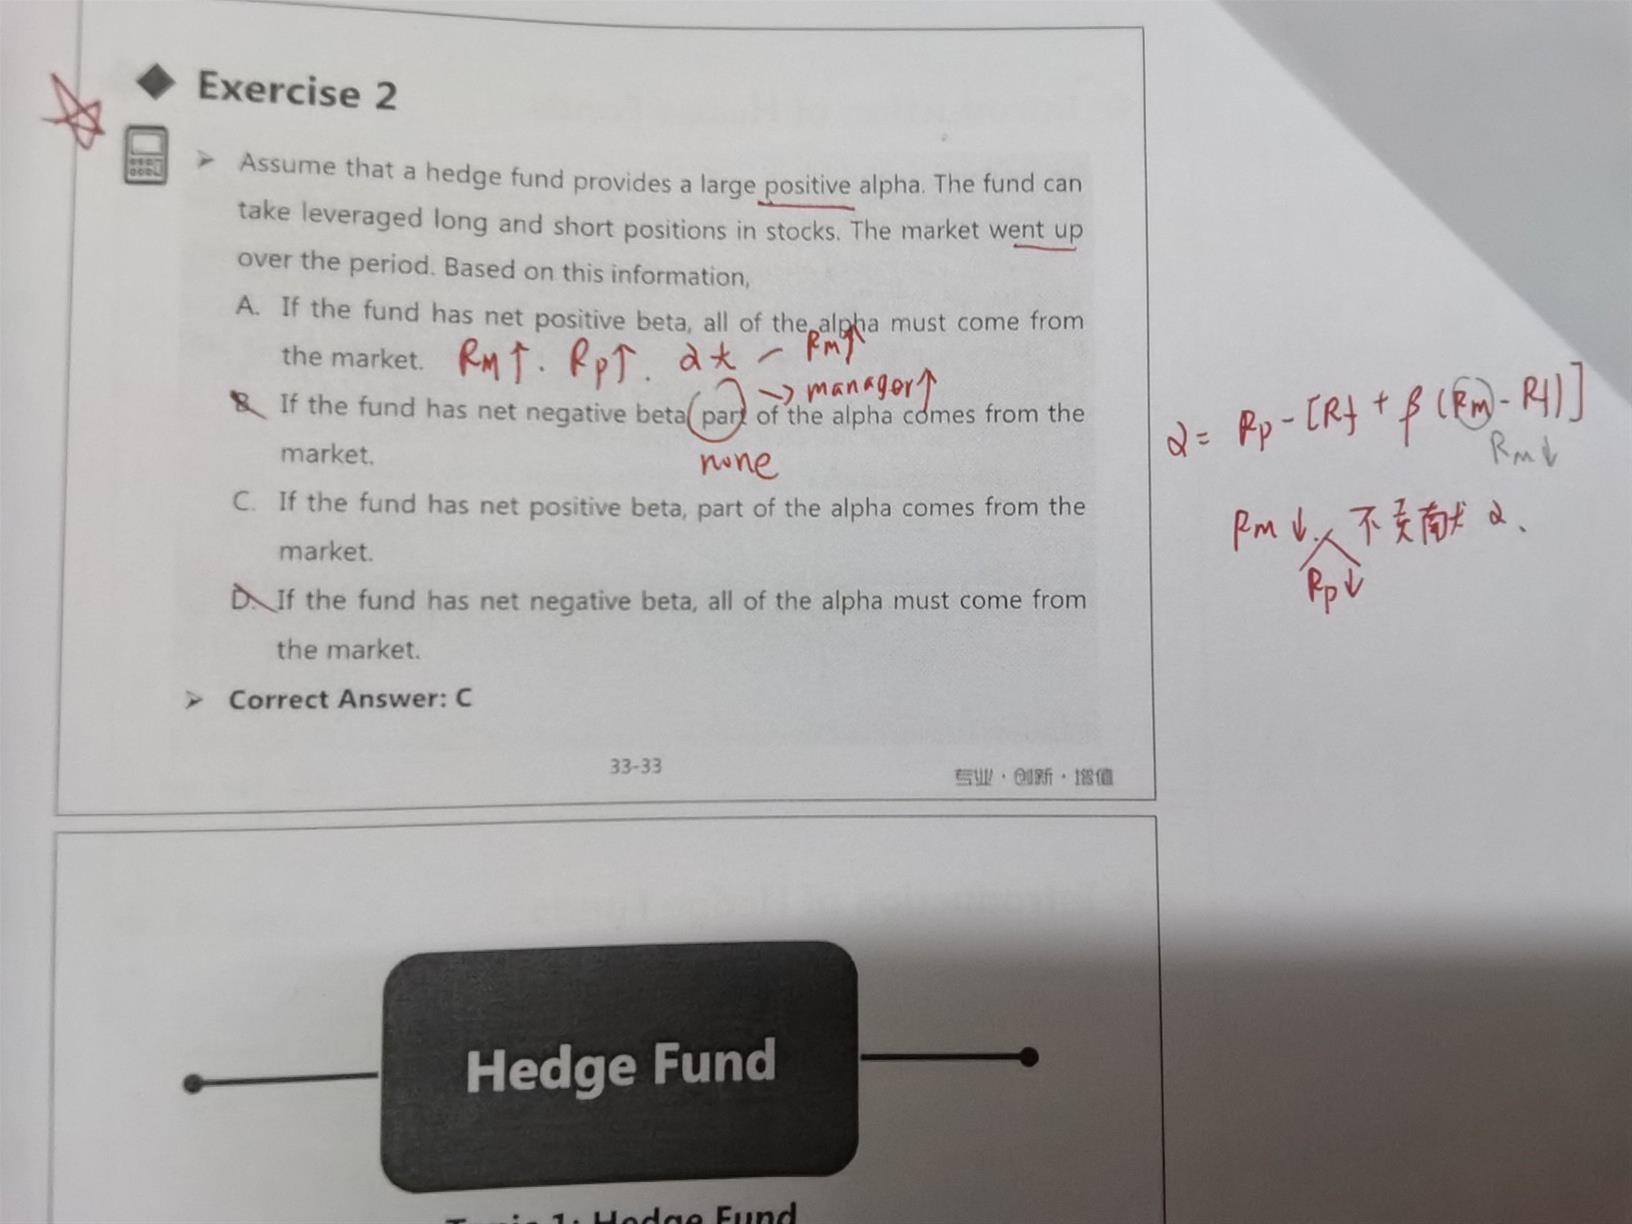 Exercise 2
Assume that a hedge fund provides a large positive alpha. The fund can
take leveraged long and short positions in stocks. The market went up
over the period. Based on this information,
A. If the fund has net positive beta, all of the alpha must come from
the market. RM↑. Rp↑. α大 — RM↑
→ manager↑
B. If the fund has net negative beta, part of the alpha comes from the
market.
none
C. If the fund has net positive beta, part of the alpha comes from the
market.
D. If the fund has net negative beta, all of the alpha must come from
the market.
Correct Answer: C
33-33
专业·创新·增值
α = Rp - [Rf + β (Rm - Rf)]
Rm↓
Rm↓. 不贡献 α.
Rp↓
Hedge Fund
Hedge Fund